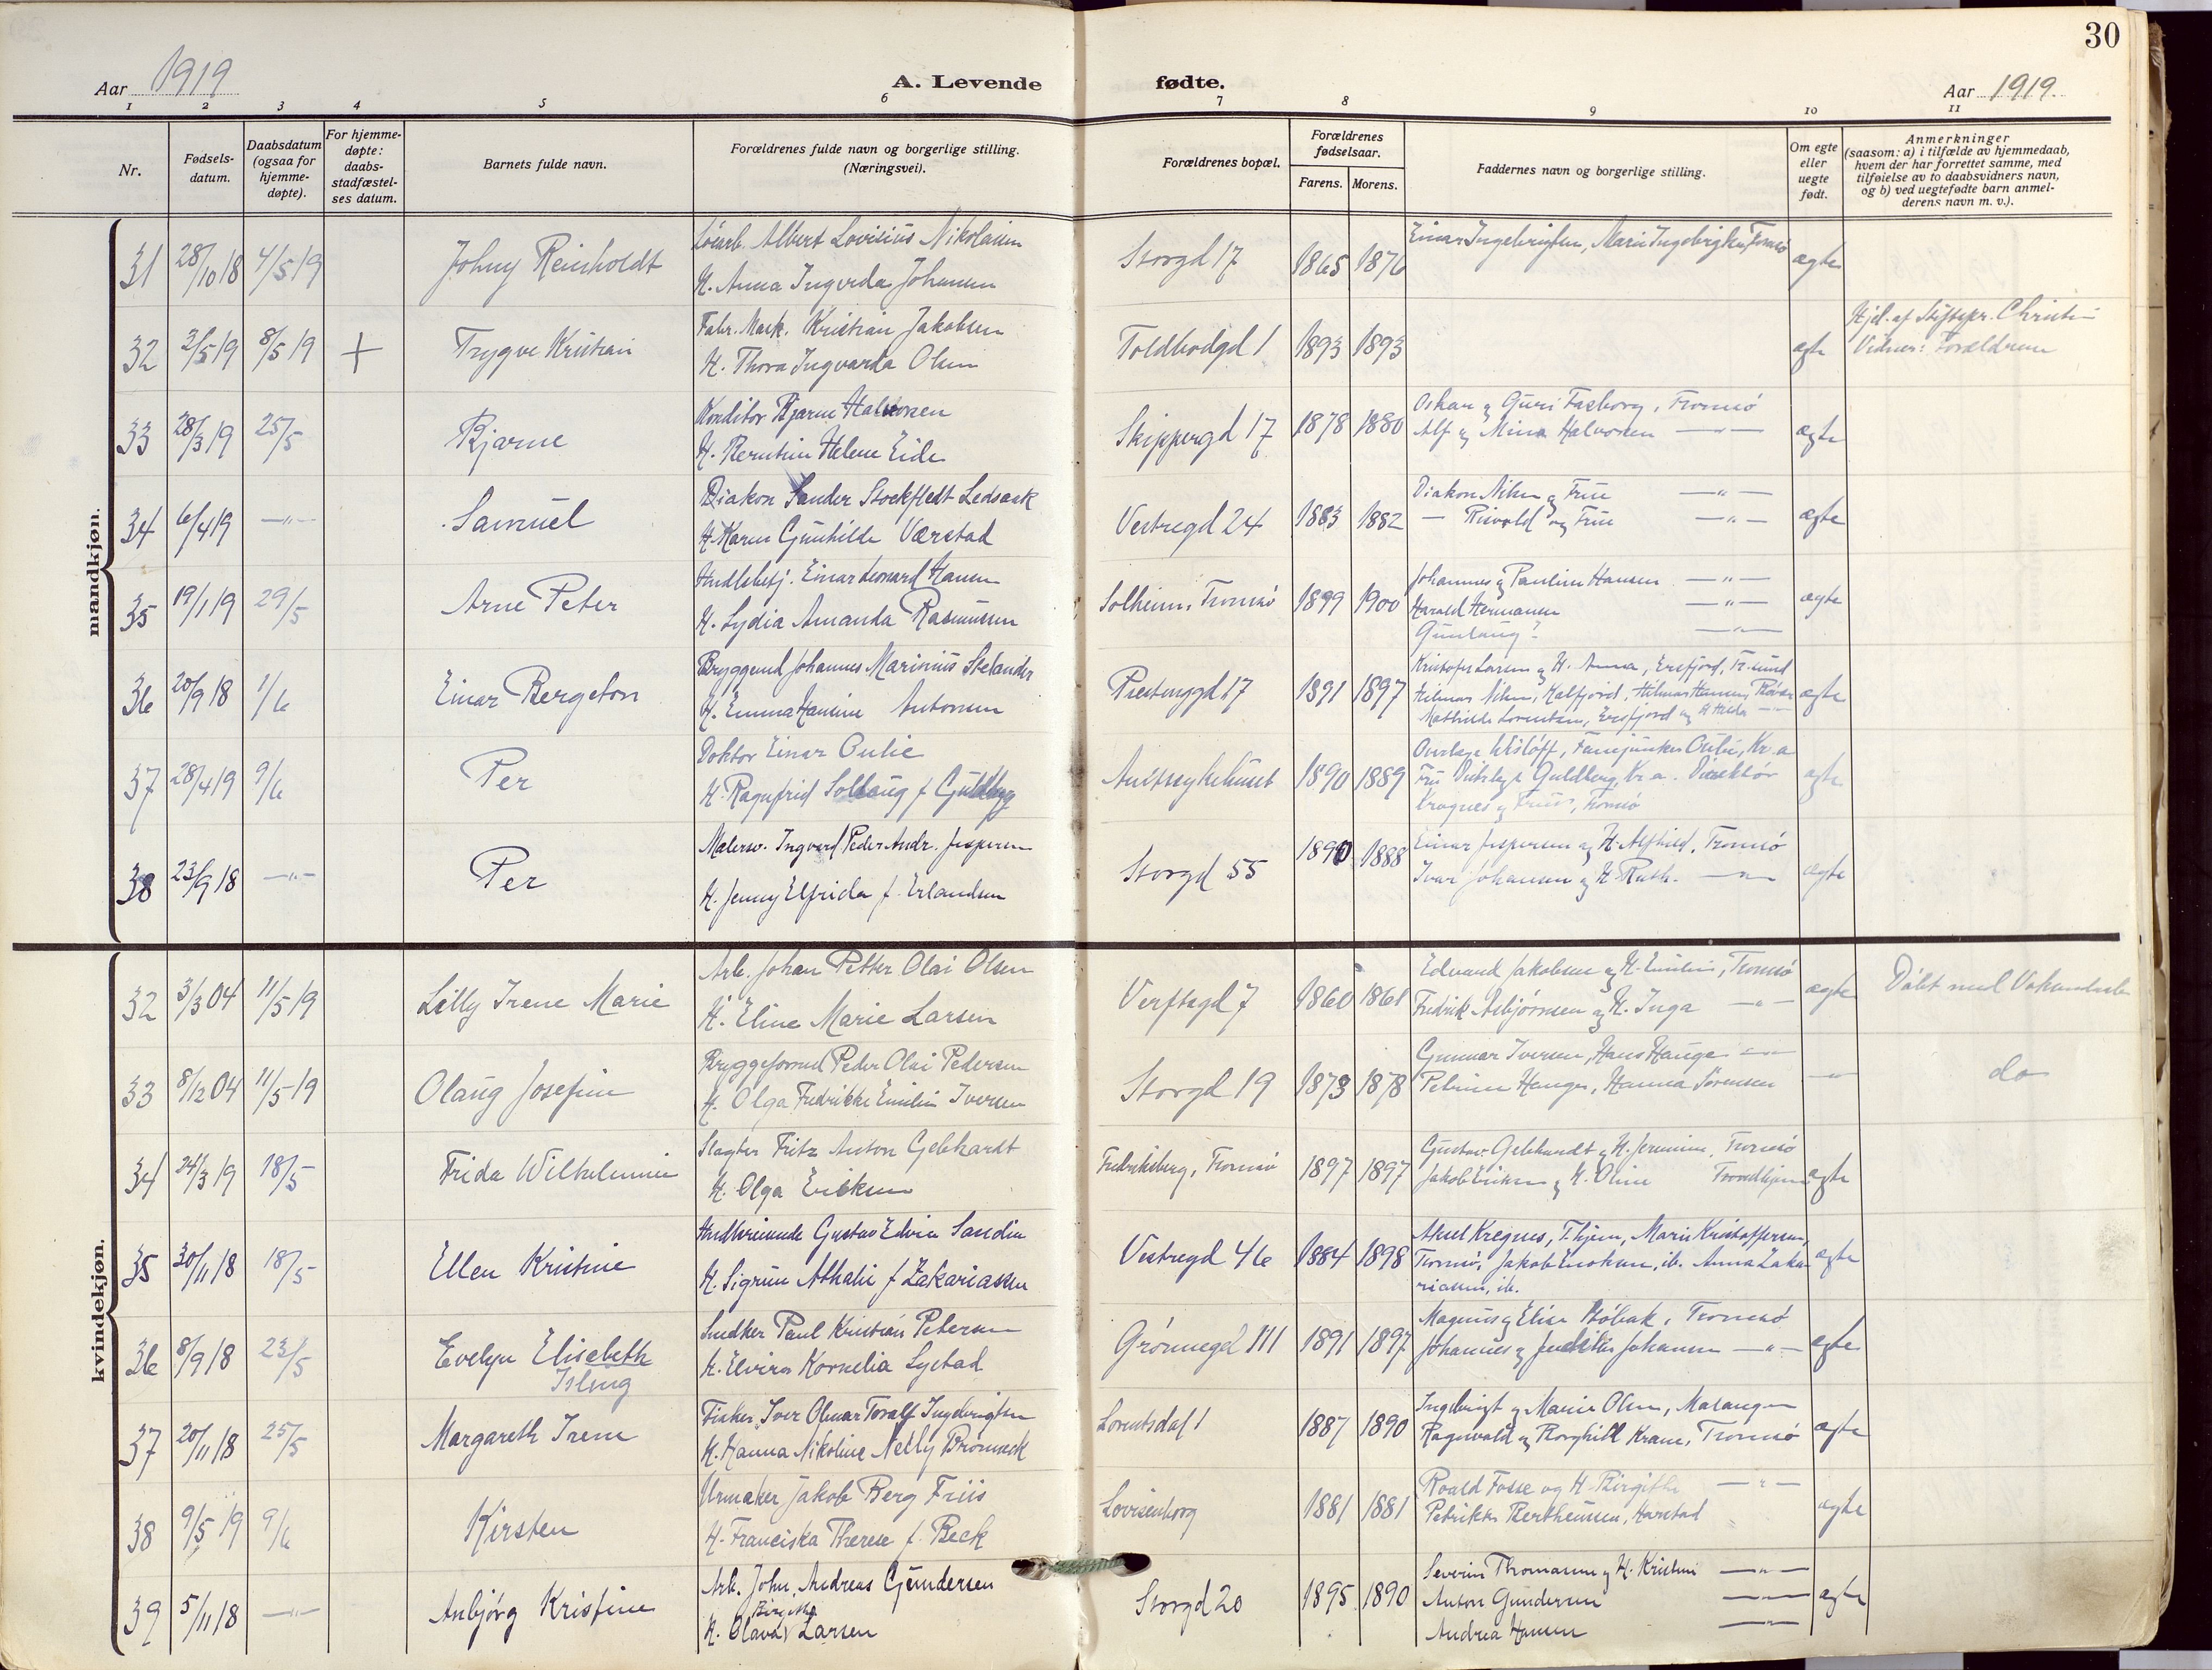 30
Aar 1919
A. Levende fødte.
Aar 1919.
1 2 3 4 5 6 7 8 9 10 11
Nr.
Fødsels-
datum.
Daabsdatum
(ogsaa for
hjemme-
døpte).
For hjemme-
døpte:
daabs-
stadfæstel-
ses datum.
Barnets fulde navn.
Forældrenes fulde navn og borgerlige stilling.
(Næringsvei).
Forældrenes bopæl.
Forældrenes
fødselsaar.
Farens. Morens.
Faddernes navn og borgerlige stilling.
Om egte
eller
uegte
født.
Anmerkninger
(saasom: a) i tilfælde av hjemmedaab,
hvem der har forrettet samme, med
tilføielse av to daabsvidners navn,
og b) ved uegtefødte barn anmel-
derens navn m. v.).
mandkjøn.
31 28/10 18 4/5 19 Johny Reinholdt Albert Lovisius Nikolaisen Storgd 17 1865 1876 Einar Ingebrigtsen, Marie Ingebrigtsen, Tromsø ægte
H. Anna Ingvarda Johansen
32 3/5 19 8/5 19 + Trygve Kristian Fabr. Mask. Kristian Jakobsen Toldbodgd 1 1893 1893 ægte Hjd. af Stiftspr. Christie
H. Thora Ingvarda Olsen Vidner: Forældrene
33 28/3 19 25/5 Bjarne Konditor Bjarne Halvorsen Skippergd 17 1878 1880 Oskar og Guri Fasborg, Tromsø ægte
H. Berntine Helene Eide Alf og Mina Halvorsen —"—
34 6/4 19 —"— Samuel Diakon Sander Stockfledt Ledsaak Vestregd 24 1883 1882 Diakon Nilsen og Frue —"— ægte
H. Karen Gunhilde Værstad — Risvold og Frue —"—
35 19/1 19 29/5 Arne Peter Handlsbetj. Einar Leonard Hansen Solheim, Tromsø 1899 1900 Johannes og Pauline Hansen —"— ægte
H. Lydia Amanda Rasmussen Harald Hermansen —"—
Gunlaug? —"—
36 20/9 18 1/6 Einar Bergeton Bryggemd Johannes Marinius Stelander Prestenggd 17 1891 1897 Kristofer Larsen og H. Anna, Ersfjord, Tr.sund ægte
H. Emma Hansine Antonsen Hilmar Nilsen, Kalfjord, Hilmar Hansen
Mathilde Lorentsen, Ersfjord og —"—
37 28/4 19 9/6 Per Doktor Einar Oulie Amtssykehuset 1890 1889 Overlæge Wisløff, Fanejunker Oulie, Kr.a ægte
H. Ragnfrid Solhaug f Guldberg Fru Guldberg, Kr.a. Direktør
Kragnes og Frue, Tromsø
38 23/9 18 —"— Per Malersv. Ingvard Peder Andr. Jespersen Storgd 55 1890 1888 Einar Jespersen og H. Alfhild, Tromsø ægte
H. Jenny Elfrida f. Erlandsen Ivar Johansen og H. Ruth. —"—
kvindekjøn.
32 3/3 04 11/5 19 Lilly Irene Marie Arb. Johan Petter Olai Olsen Verftsgd 7 1860 1861 Edvard Jakobsen og H. Emilie, Tromsø ægte Døbt med Voksendaab
H. Eline Marie Larsen Fredrik Asbjørnsen og H. Inga —"—
33 8/12 04 11/5 19 Olaug Josefine Bryggeformd Peder Olai Pedersen Storgd 19 1873 1878 Gunnar Iversen, Hans Hauge —"— —"— do
H. Olga Fredrikke Emilie Iversen Petrine Hauge, Hanna Sørensen
34 24/3 19 18/5 Frida Wilhelmine Slagter Fritz Anton Gebhardt Fredriksberg, Tromsø 1897 1897 Gustav Gebhardt og H. Jermine, Tromsø ægte
H. Olga Eriksen Jakob Eriksen og H. Oline Trondhjem
35 30/11 18 18/5 Ellen Kristine Handlsreisende Gustav Edvin Sandin Vestregd 46 1884 1898 Aksel Kregnes, T.hjem, Marie Kristoffersen, ægte
H. Sigrun Athalie f Zakariassen Tromsø, Jakob Enoksen, ib. Anna Zaka-
riassen, ib.
36 8/9 18 23/5 Evelyn Elisebeth Snedker Paul Kristian Petersen Grønnegd 111 1891 1897 Magnus og Elise Støbak, Tromsø ægte
H. Elvira Kornelia Systad Johannes og Fredrikke Johansen —"—
37 20/11 18 25/5 Margareth Irene Fisker Iver Olmar Toralf Ingebrigtsen Lorentsdal 1 1887 1890 Ingebrigt og Marie Olsen, Malangen ægte
H. Hanna Nikoline Nelly Bromseck Ragnvald og Borghill Krane, Tromsø
38 9/5 19 9/6 Kirsten Urmaker Jakob Berg Friis Lovisenborg 1881 1881 Roald Fosse og H. Birgithe —"— ægte
H. Franciska Therese f. Beck Petrikke Bertheussen, Harstad
39 5/11 18 —"— Anbjørg Kristine Arb. John Andreas Gundersen Storgd 20 1895 1890 Severin Thomassen og H. Kristine —"— ægte
H. Olava Birgitte Larsen Anton Gundersen —"—
Andrea Hansen —"—